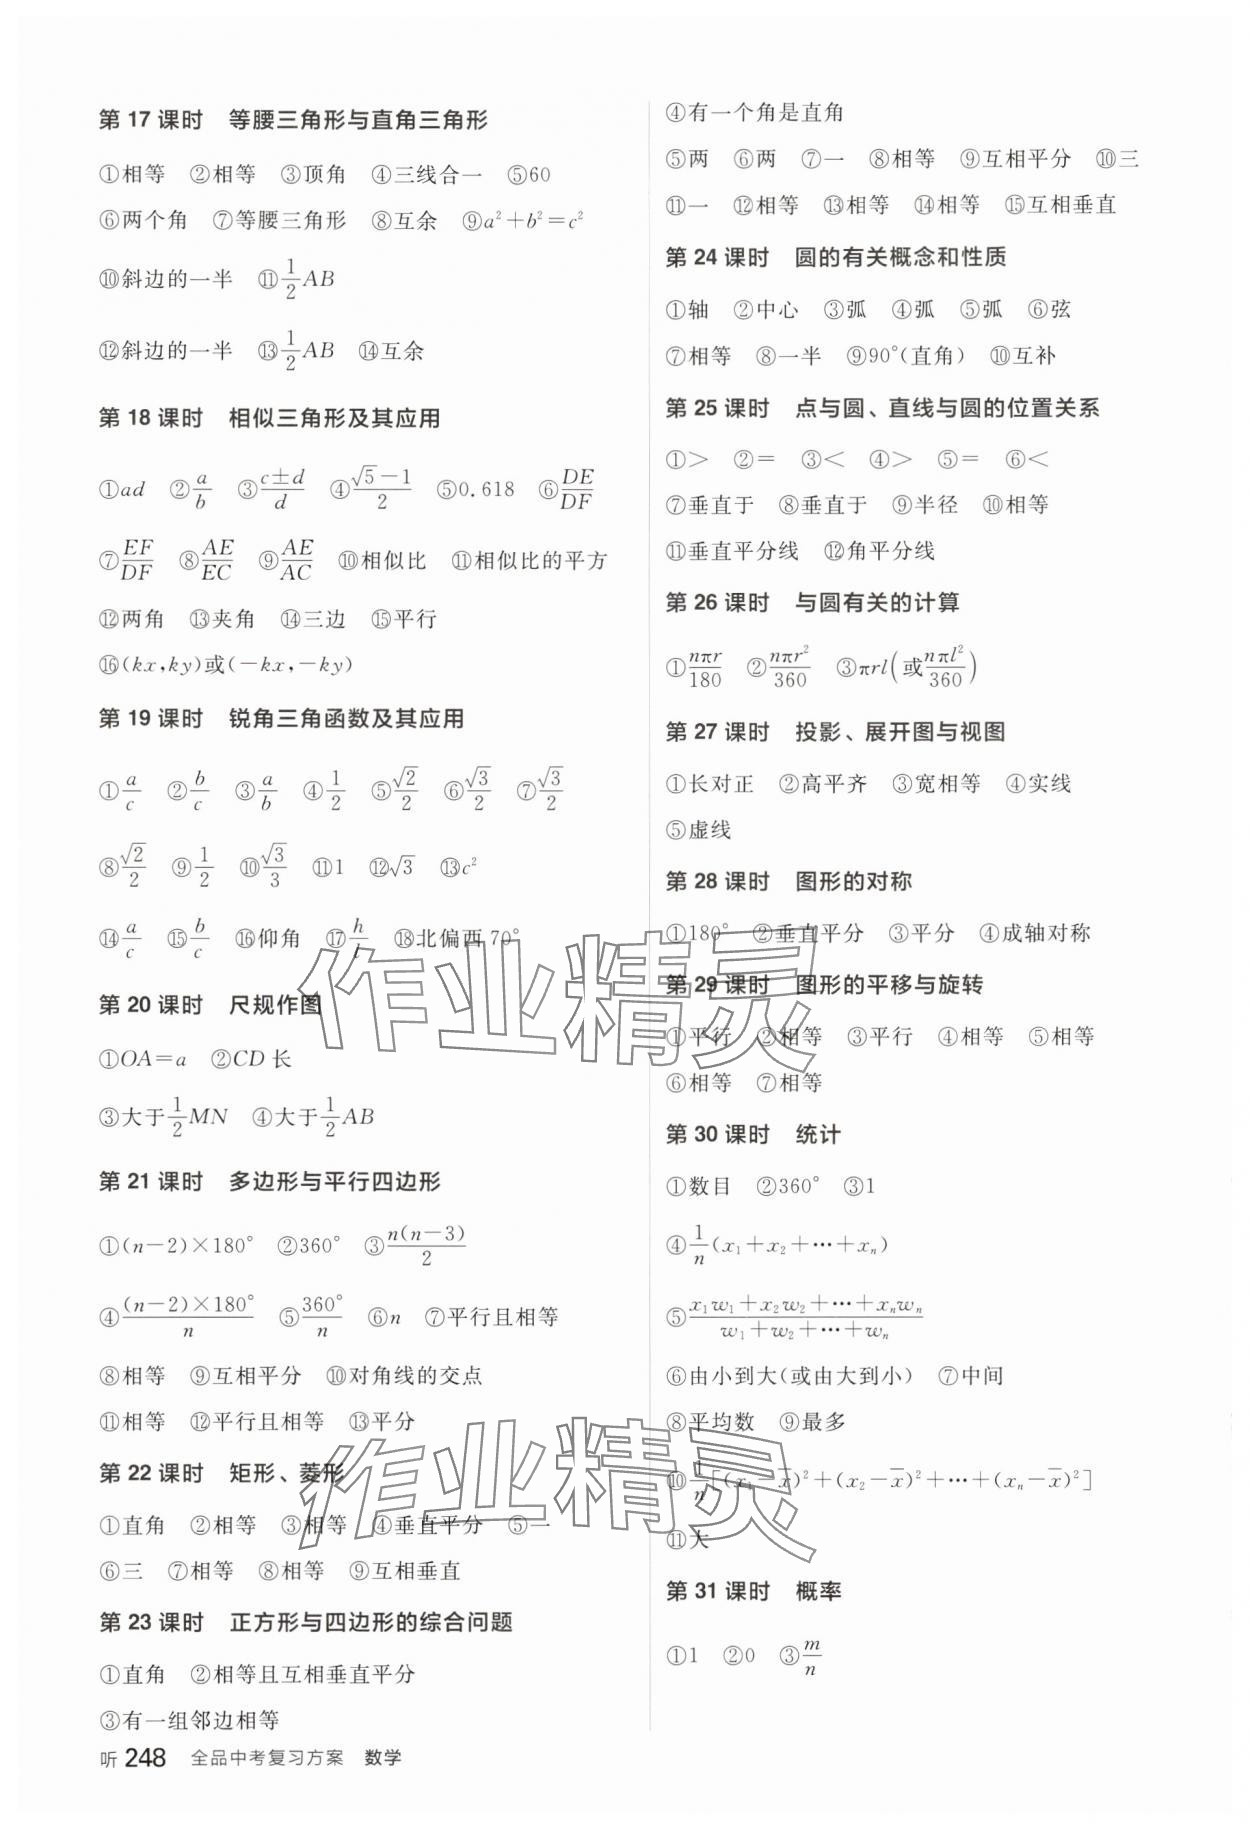 第 17 课时 等腰三角形与直角三角形
①相等 ②相等 ③顶角 ④三线合一 ⑤60
⑥两个角 ⑦等腰三角形 ⑧互余 ⑨a²+b²=c²
⑩斜边的一半 ⑪1/2AB
⑫斜边的一半 ⑬1/2AB ⑭互余
第 18 课时 相似三角形及其应用
①ad ②a/b ③(c±d)/d ④(√5-1)/2 ⑤0.618 ⑥DE/DF
⑦EF/DF ⑧AE/EC ⑨AE/AC ⑩相似比 ⑪相似比的平方
⑫两角 ⑬夹角 ⑭三边 ⑮平行
⑯(kx,ky)或(-kx,-ky)
第 19 课时 锐角三角函数及其应用
①a/c ②b/c ③a/b ④1/2 ⑤√2/2 ⑥√3/2 ⑦√3/2
⑧√2/2 ⑨1/2 ⑩√3/3 ⑪1 ⑫√3 ⑬c²
⑭a/c ⑮b/c ⑯仰角 ⑰h/l ⑱北偏西70°
第 20 课时 尺规作图
①OA=a ②CD长
③大于1/2MN ④大于1/2AB
第 21 课时 多边形与平行四边形
①(n-2)×180° ②360° ③n(n-3)/2
④(n-2)×180°/n ⑤360°/n ⑥n ⑦平行且相等
⑧相等 ⑨互相平分 ⑩对角线的交点
⑪相等 ⑫平行且相等 ⑬平分
第 22 课时 矩形、菱形
①直角 ②相等 ③相等 ④垂直平分 ⑤一
⑥三 ⑦相等 ⑧相等 ⑨互相垂直
第 23 课时 正方形与四边形的综合问题
①直角 ②相等且互相垂直平分
③有一组邻边相等
④有一个角是直角
⑤两 ⑥两 ⑦一 ⑧相等 ⑨互相平分 ⑩三
⑪一 ⑫相等 ⑬相等 ⑭相等 ⑮互相垂直
第 24 课时 圆的有关概念和性质
①轴 ②中心 ③弧 ④弧 ⑤弧 ⑥弦
⑦相等 ⑧一半 ⑨90°(直角) ⑩互补
第 25 课时 点与圆、直线与圆的位置关系
①> ②= ③< ④> ⑤= ⑥<
⑦垂直于 ⑧垂直于 ⑨半径 ⑩相等
⑪垂直平分线 ⑫角平分线
第 26 课时 与圆有关的计算
①nπr/180 ②nπr²/360 ③πrl(或nπl²/360)
第 27 课时 投影、展开图与视图
①长对正 ②高平齐 ③宽相等 ④实线
⑤虚线
第 28 课时 图形的对称
①180° ②垂直平分 ③平分 ④成轴对称
第 29 课时 图形的平移与旋转
①平行 ②相等 ③平行 ④相等 ⑤相等
⑥相等 ⑦相等
第 30 课时 统计
①数目 ②360° ③1
④1/n(x₁+x₂+…+xₙ)
⑤(x₁w₁+x₂w₂+…+xₙwₙ)/(w₁+w₂+…+wₙ)
⑥由小到大(或由大到小) ⑦中间
⑧平均数 ⑨最多
⑩1/n[(x₁-x̄)²+(x₂-x̄)²+…+(xₙ-x̄)²]
⑪大
第 31 课时 概率
①1 ②0 ③m/n
听 248 全品中考复习方案 数学
作业精灵
作业精灵